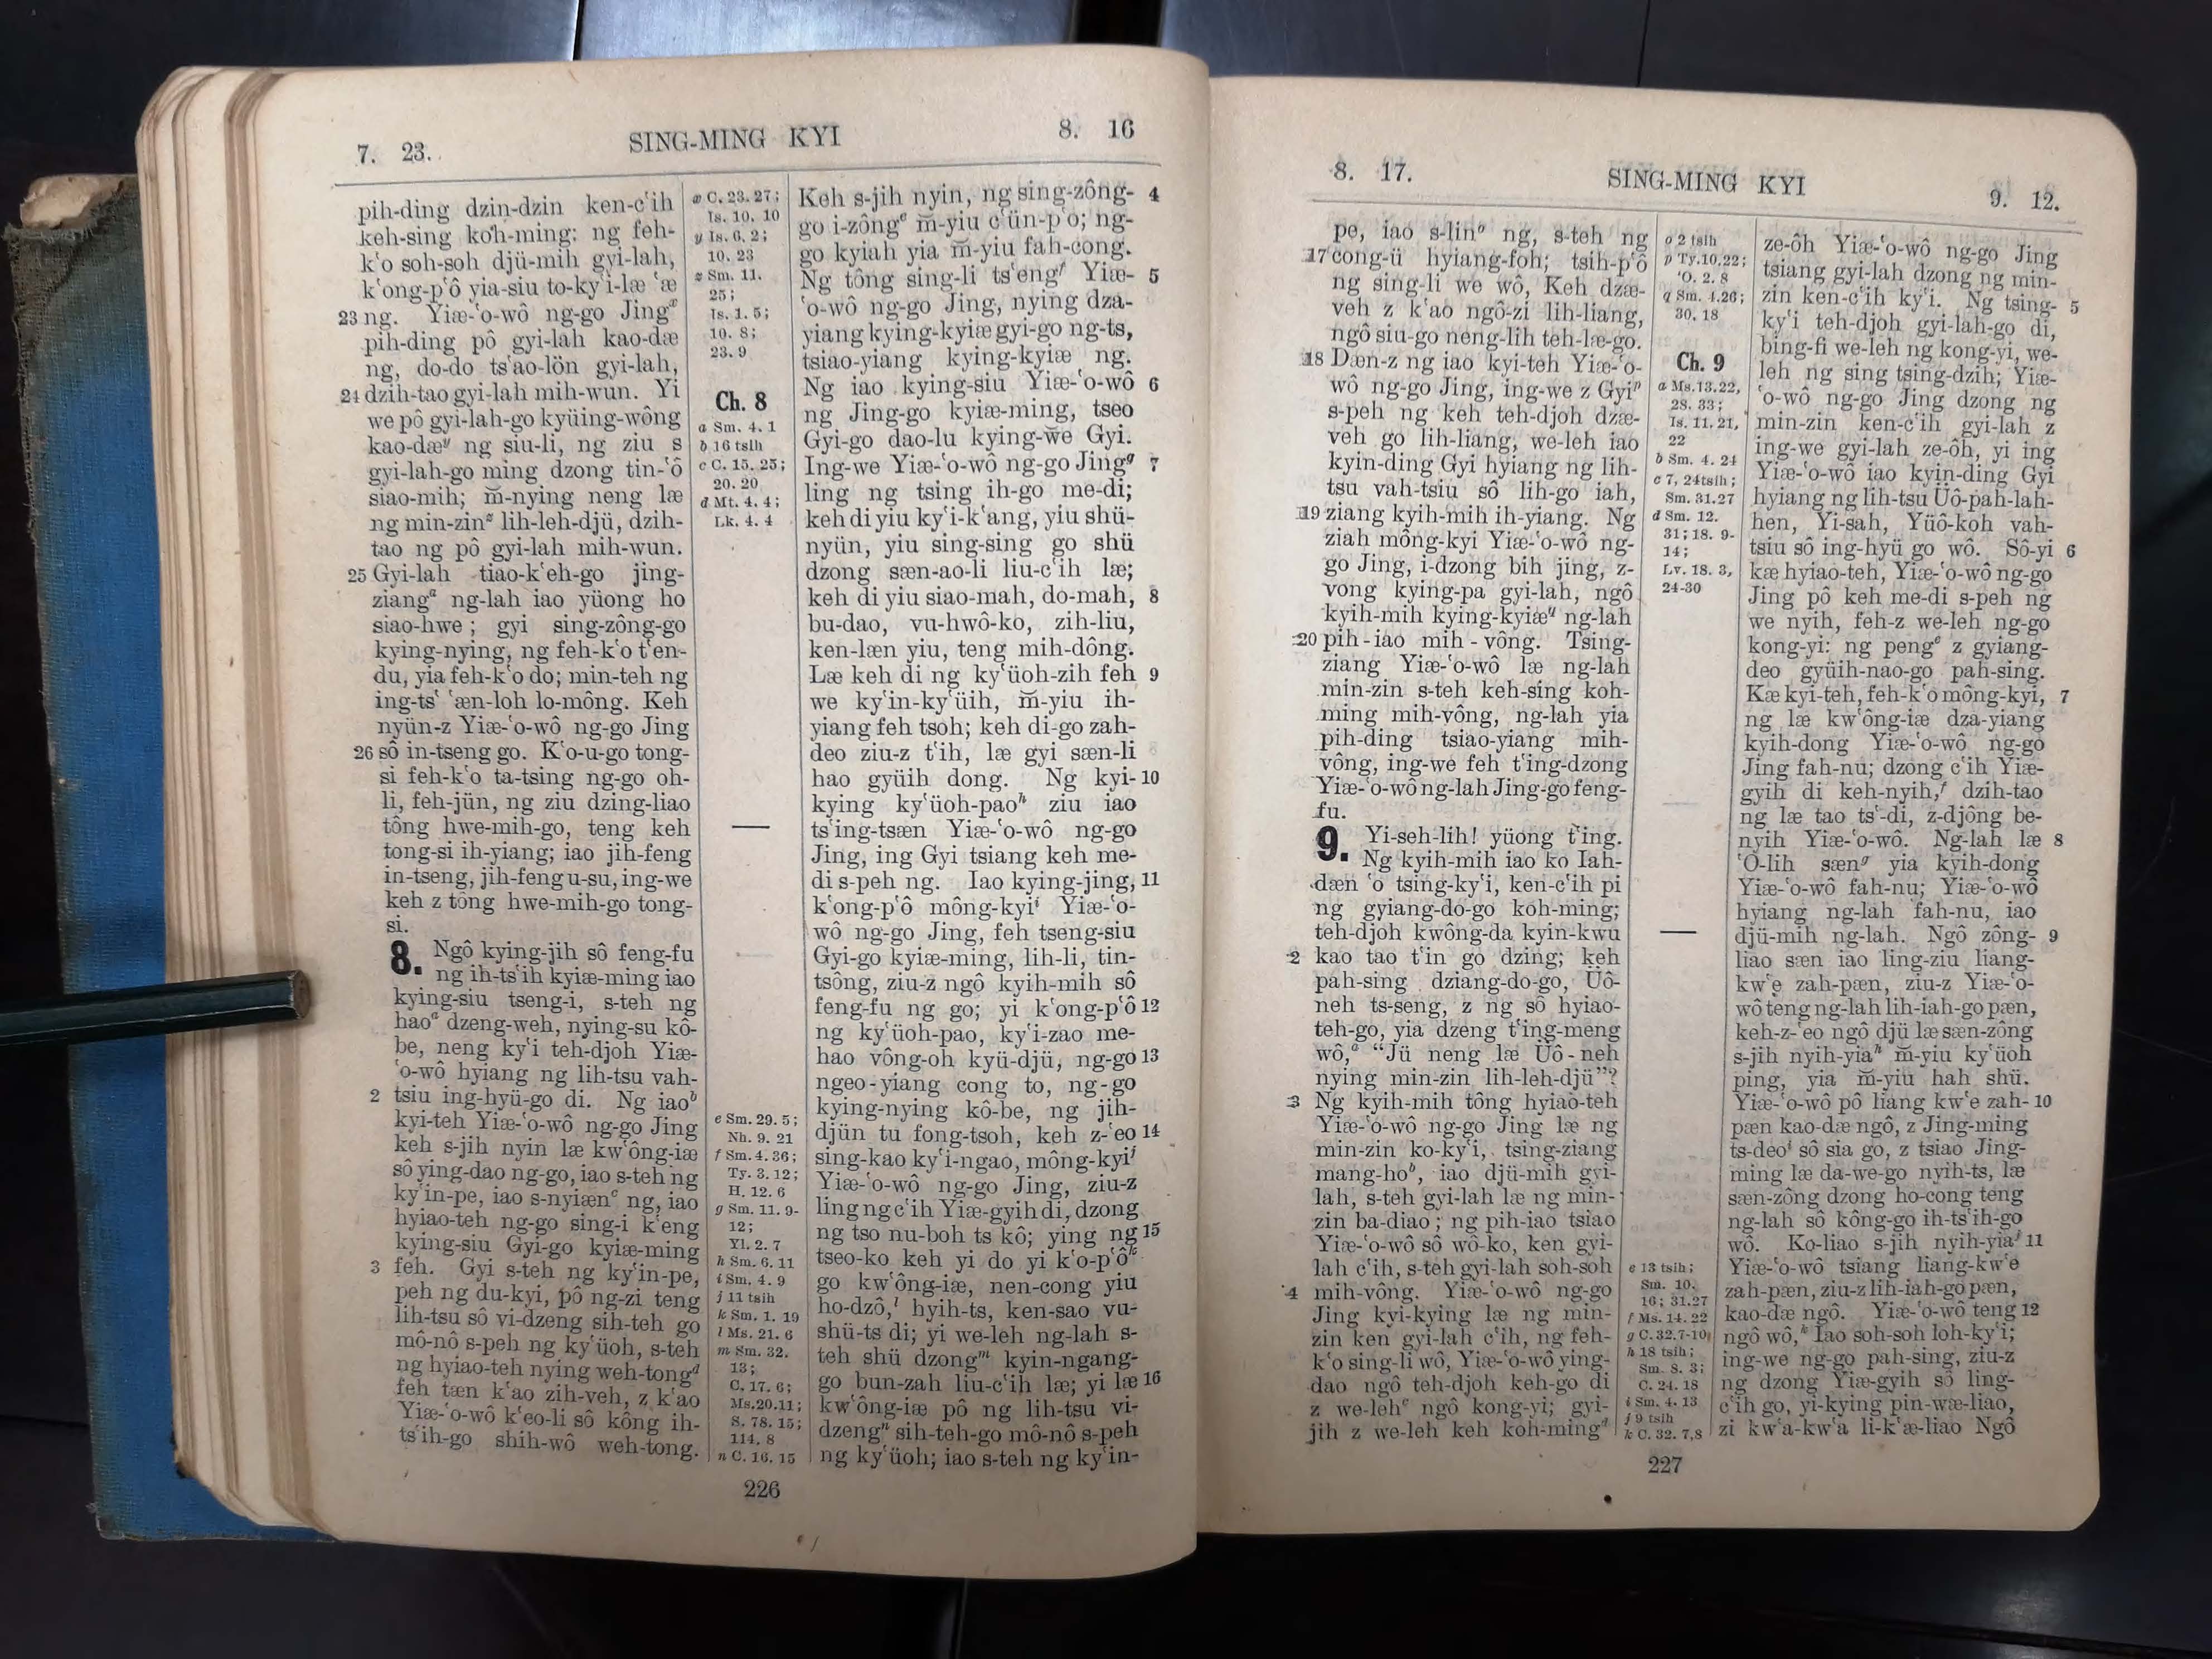 7. 23.
SING-MING KYI
8. 16
pih-ding dzin-dzin ken-c‘ih
keh-sing koh-ming: ng feh-
k‘o soh-soh djü-mih gyi-lah,
k‘ong-p‘ô yia-siu to-ky‘i-læ ‘æ
23 ng. Yiæ-‘o-wô ng-go Jingˣ
pih-ding pô gyi-lah kao-dæ
ng, do-do ts‘ao-lön gyi-lah,
24 dzih-tao gyi-lah mih-wun. Yi
we pô gyi-lah-go kyüing-wông
kao-dæʸ ng siu-li, ng ziu s
gyi-lah-go ming dzong tin-‘ô
siao-mih; m̆-nying neng læ
ng min-zinᶻ lih-leh-djü, dzih-
tao ng pô gyi-lah mih-wun.
25 Gyi-lah tiao-k‘eh-go jing-
ziangᵃ ng-lah iao yüong ho
siao-hwe; gyi sing-zông-go
kying-nying, ng feh-k‘o t‘en-
du, yia feh-k‘o do; min-teh ng
ing-ts‘ ‘æn-loh lo-mông. Keh
nyün-z Yiæ-‘o-wô ng-go Jing
26 sô in-tseng go. K‘o-u-go tong-
si feh-k‘o ta-tsing ng-go oh-
li, feh-jün, ng ziu dzing-liao
tông hwe-mih-go, teng keh
tong-si ih-yiang; iao jih-feng
in-tseng, jih-feng u-su, ing-we
keh z tông hwe-mih-go tong-
si.
8. Ngô kying-jih sô feng-fu
ng ih-ts‘ih kyiæ-ming iao
kying-siu tseng-i, s-teh ng
haoᵃ dzeng-weh, nying-su kô-
be, neng ky‘i teh-djoh Yiæ-
‘o-wô hyiang ng lih-tsu vah-
2 tsiu ing-hyü-go di. Ng iaoᵇ
kyi-teh Yiæ-‘o-wô ng-go Jing
keh s-jih nyin læ kw‘ông-iæ
sô ying-dao ng-go, iao s-teh ng
ky‘in-pe, iao s-nyiænᶜ ng, iao
hyiao-teh ng-go sing-i k‘eng
kying-siu Gyi-go kyiæ-ming
3 feh. Gyi s-teh ng ky‘in-pe,
peh ng du-kyi, pô ng-zi teng
lih-tsu sô vi-dzeng sih-teh go
mô-nô s-peh ng ky‘üoh, s-teh
ng hyiao-teh nying weh-tongᵈ
feh tæn k‘ao zih-veh, z k‘ao
Yiæ-‘o-wô k‘eo-li sô kông ih-
ts‘ih-go shih-wô weh-tong.
x C. 23. 27;
Is. 10. 10
y Is. 6. 2;
10. 23
z Sm. 11.
25;
Is. 1. 5;
10. 8;
23. 9
Ch. 8
a Sm. 4. 1
b 16 tsih
c C. 15. 25;
20. 20
d Mt. 4. 4;
Lk. 4. 4
e Sm. 29. 5;
Nh. 9. 21
f Sm. 4. 36;
Ty. 3. 12;
H. 12. 6
g Sm. 11. 9-
12;
Yl. 2. 7
h Sm. 6. 11
i Sm. 4. 9
j 11 tsih
k Sm. 1. 19
l Ms. 21. 6
m Sm. 32.
13;
C. 17. 6;
Ms. 20. 11;
S. 78. 15;
114. 8
n C. 16. 15
Keh s-jih nyin, ng sing-zông- 4
go i-zôngᵉ m̆-yiu c‘ün-p‘o; ng-
go kyiah yia m̆-yiu fah-cong.
Ng tông sing-li ts‘engᶠ Yiæ- 5
‘o-wô ng-go Jing, nying dza-
yiang kying-kyiæ gyi-go ng-ts,
tsiao-yiang kying-kyiæ ng.
Ng iao kying-siu Yiæ-‘o-wô 6
ng Jing-go kyiæ-ming, tseo
Gyi-go dao-lu kying-we Gyi.
Ing-we Yiæ-‘o-wô ng-go Jingᵍ 7
ling ng tsing ih-go me-di;
keh di yiu ky‘i-k‘ang, yiu shü-
nyün, yiu sing-sing go shü
dzong sæn-ao-li liu-c‘ih læ;
keh di yiu siao-mah, do-mah, 8
bu-dao, vu-hwô-ko, zih-liu,
ken-læn yiu, teng mih-dông.
Læ keh di ng ky‘üoh-zih feh 9
we ky‘in-ky‘üih, m̆-yiu ih-
yiang feh tsoh; keh di-go zah-
deo ziu-z t‘ih, læ gyi sæn-li
hao gyüih dong. Ng kyi- 10
kying ky‘üoh-paoʰ ziu iao
ts‘ing-tsæn Yiæ-‘o-wô ng-go
Jing, ing Gyi tsiang keh me-
di s-peh ng. Iao kying-jing, 11
k‘ong-p‘ô mông-kyiⁱ Yiæ-‘o-
wô ng-go Jing, feh tseng-siu
Gyi-go kyiæ-ming, lih-li, tin-
tsông, ziu-z ngô kyih-mih sô
feng-fu ng go; yi k‘ong-p‘ô 12
ng ky‘üoh-pao, ky‘i-zao me-
hao vông-oh kyü-djü, ng-go 13
ngeo-yiang cong to, ng-go
kying-nying kô-be, ng jih-
djün tu fong-tsoh, keh z-‘eo 14
sing-kao ky‘i-ngao, mông-kyiʲ
Yiæ-‘o-wô ng-go Jing, ziu-z
ling ng c‘ih Yiæ-gyih di, dzong
ng tso nu-boh ts kô; ying ng 15
tseo-ko keh yi do yi k‘o-p‘ôᵏ
go kw‘ông-iæ, nen-cong yiu
ho-dzô,ˡ hyih-ts, ken-sao vu-
shü-ts di; yi we-leh ng-lah s-
teh shü dzongᵐ kyin-ngang-
go bun-zah liu-c‘ih læ; yi læ 16
kw‘ông-iæ pô ng lih-tsu vi-
dzengⁿ sih-teh-go mô-nô s-peh
ng ky‘üoh; iao s-teh ng ky‘in-
226
8. 17.
SING-MING KYI
9. 12.
pe, iao s-linᵒ ng, s-teh ng
17 cong-ü hyiang-foh; tsih-p‘ô
ng sing-li we wô, Keh dzæ-
veh z k‘ao ngô-zi lih-liang,
ngô siu-go neng-lih teh-læ-go.
18 Dæn-z ng iao kyi-teh Yiæ-‘o-
wô ng-go Jing, ing-we z Gyiᵖ
s-peh ng keh teh-djoh dzæ-
veh go lih-liang, we-leh iao
kyin-ding Gyi hyiang ng lih-
tsu vah-tsiu sô lih-go iah,
19 ziang kyih-mih ih-yiang. Ng
ziah mông-kyi Yiæ-‘o-wô ng-
go Jing, i-dzong bih jing, z-
vong kying-pa gyi-lah, ngô
kyih-mih kying-kyiæᵍ ng-lah
20 pih-iao mih-vông. Tsing-
ziang Yiæ-‘o-wô læ ng-lah
min-zin s-teh keh-sing koh-
ming mih-vông, ng-lah yia
pih-ding tsiao-yiang mih-
vông, ing-we feh t‘ing-dzong
Yiæ-‘o-wô ng-lah Jing-go feng-
fu.
9. Yi-seh-lih! yüong t‘ing.
Ng kyih-mih iao ko Iah-
dæn ‘o tsing-ky‘i, ken-c‘ih pi
ng gyiang-do-go koh-ming;
teh-djoh kwông-da kyin-kwu
2 kao tao t‘in go dzing; keh
pah-sing dziang-do-go, Üô-
neh ts-seng, z ng sô hyiao-
teh-go, yia dzeng t‘ing-meng
wô,ᵃ “Jü neng læ Üô-neh
nying min-zin lih-leh-djü”?
3 Ng kyih-mih tông hyiao-teh
Yiæ-‘o-wô ng-go Jing læ ng
min-zin ko-ky‘i, tsing-ziang
mang-hoᵇ, iao djü-mih gyi-
lah, s-teh gyi-lah læ ng min-
zin ba-diao; ng pih-iao tsiao
Yiæ-‘o-wô sô wô-ko, ken gyi-
lah c‘ih, s-teh gyi-lah soh-soh
4 mih-vông. Yiæ-‘o-wô ng-go
Jing kyi-kying læ ng min-
zin ken gyi-lah c‘ih, ng feh-
k‘o sing-li wô, Yiæ-‘o-wô ying-
dao ngô teh-djoh keh-go di
z we-lehᶜ ngô kong-yi; gyi-
jih z we-leh keh koh-mingᵈ
o 2 tsih
p Ty. 10. 22;
‘O. 2. 8
q Sm. 4. 26;
30. 18
Ch. 9
a Ms. 13. 22,
28. 33;
Is. 11. 21,
22
b Sm. 4. 24
c 7, 24 tsih;
Sm. 31. 27
d Sm. 12.
31; 18. 9-
14;
Lv. 18. 3,
24-30
e 13 tsih;
Sm. 10.
16; 31. 27
f Ms. 14. 22
g C. 32. 7-10,
h 18 tsih;
Sm. 8. 3;
C. 24. 18
i Sm. 4. 13
j 9 tsih
k C. 32. 7,8
ze-ôh Yiæ-‘o-wô ng-go Jing
tsiang gyi-lah dzong ng min-
zin ken-c‘ih ky‘i. Ng tsing- 5
ky‘i teh-djoh gyi-lah-go di,
bing-fi we-leh ng kong-yi, we-
leh ng sing tsing-dzih; Yiæ-
‘o-wô ng-go Jing dzong ng
min-zin ken-c‘ih gyi-lah z
ing-we gyi-lah ze-ôh, yi ing
Yiæ-‘o-wô iao kyin-ding Gyi
hyiang ng lih-tsu Üô-pah-lah-
hen, Yi-sah, Yüô-koh vah-
tsiu sô ing-hyü go wô. Sô-yi 6
kæ hyiao-teh, Yiæ-‘o-wô ng-go
Jing pô keh me-di s-peh ng
we nyih, feh-z we-leh ng-go
kong-yi: ng pengᵉ z gyiang-
deo gyüih-nao-go pah-sing.
Kæ kyi-teh, feh-k‘o mông-kyi, 7
ng læ kw‘ông-iæ dza-yiang
kyih-dong Yiæ-‘o-wô ng-go
Jing fah-nu; dzong c‘ih Yiæ-
gyih di keh-nyih,ᶠ dzih-tao
ng læ tao ts‘-di, z-djông be-
nyih Yiæ-‘o-wô. Ng-lah læ 8
‘O-lih sænᵍ yia kyih-dong
Yiæ-‘o-wô fah-nu; Yiæ-‘o-wô
hyiang ng-lah fah-nu, iao
djü-mih ng-lah. Ngô zông- 9
liao sæn iao ling-ziu liang-
kw‘e zah-pæn, ziu-z Yiæ-‘o-
wô teng ng-lah lih-iah-go pæn,
keh-z-‘eo ngô djü læ sæn-zông
s-jih nyih-yiaʰ m̆-yiu ky‘üoh
ping, yia m̆-yiu hah shü.
Yiæ-‘o-wô pô liang kw‘e zah- 10
pæn kao-dæ ngô, z Jing-ming
ts-deoⁱ sô sia go, z tsiao Jing-
ming læ da-we-go nyih-ts, læ
sæn-zông dzong ho-cong teng
ng-lah sô kông-go ih-ts‘ih-go
wô. Ko-liao s-jih nyih-yiaʲ 11
Yiæ-‘o-wô tsiang liang-kw‘e
zah-pæn, ziu-z lih-iah-go pæn,
kao-dæ ngô. Yiæ-‘o-wô teng 12
ngô wô,ᵏ Iao soh-soh loh-ky‘i;
ing-we ng-go pah-sing, ziu-z
ng dzong Yiæ-gyih sô ling-
c‘ih go, yi-kying pin-wæ-liao,
zi kw‘a-kw‘a li-k‘æ-liao Ngô
227